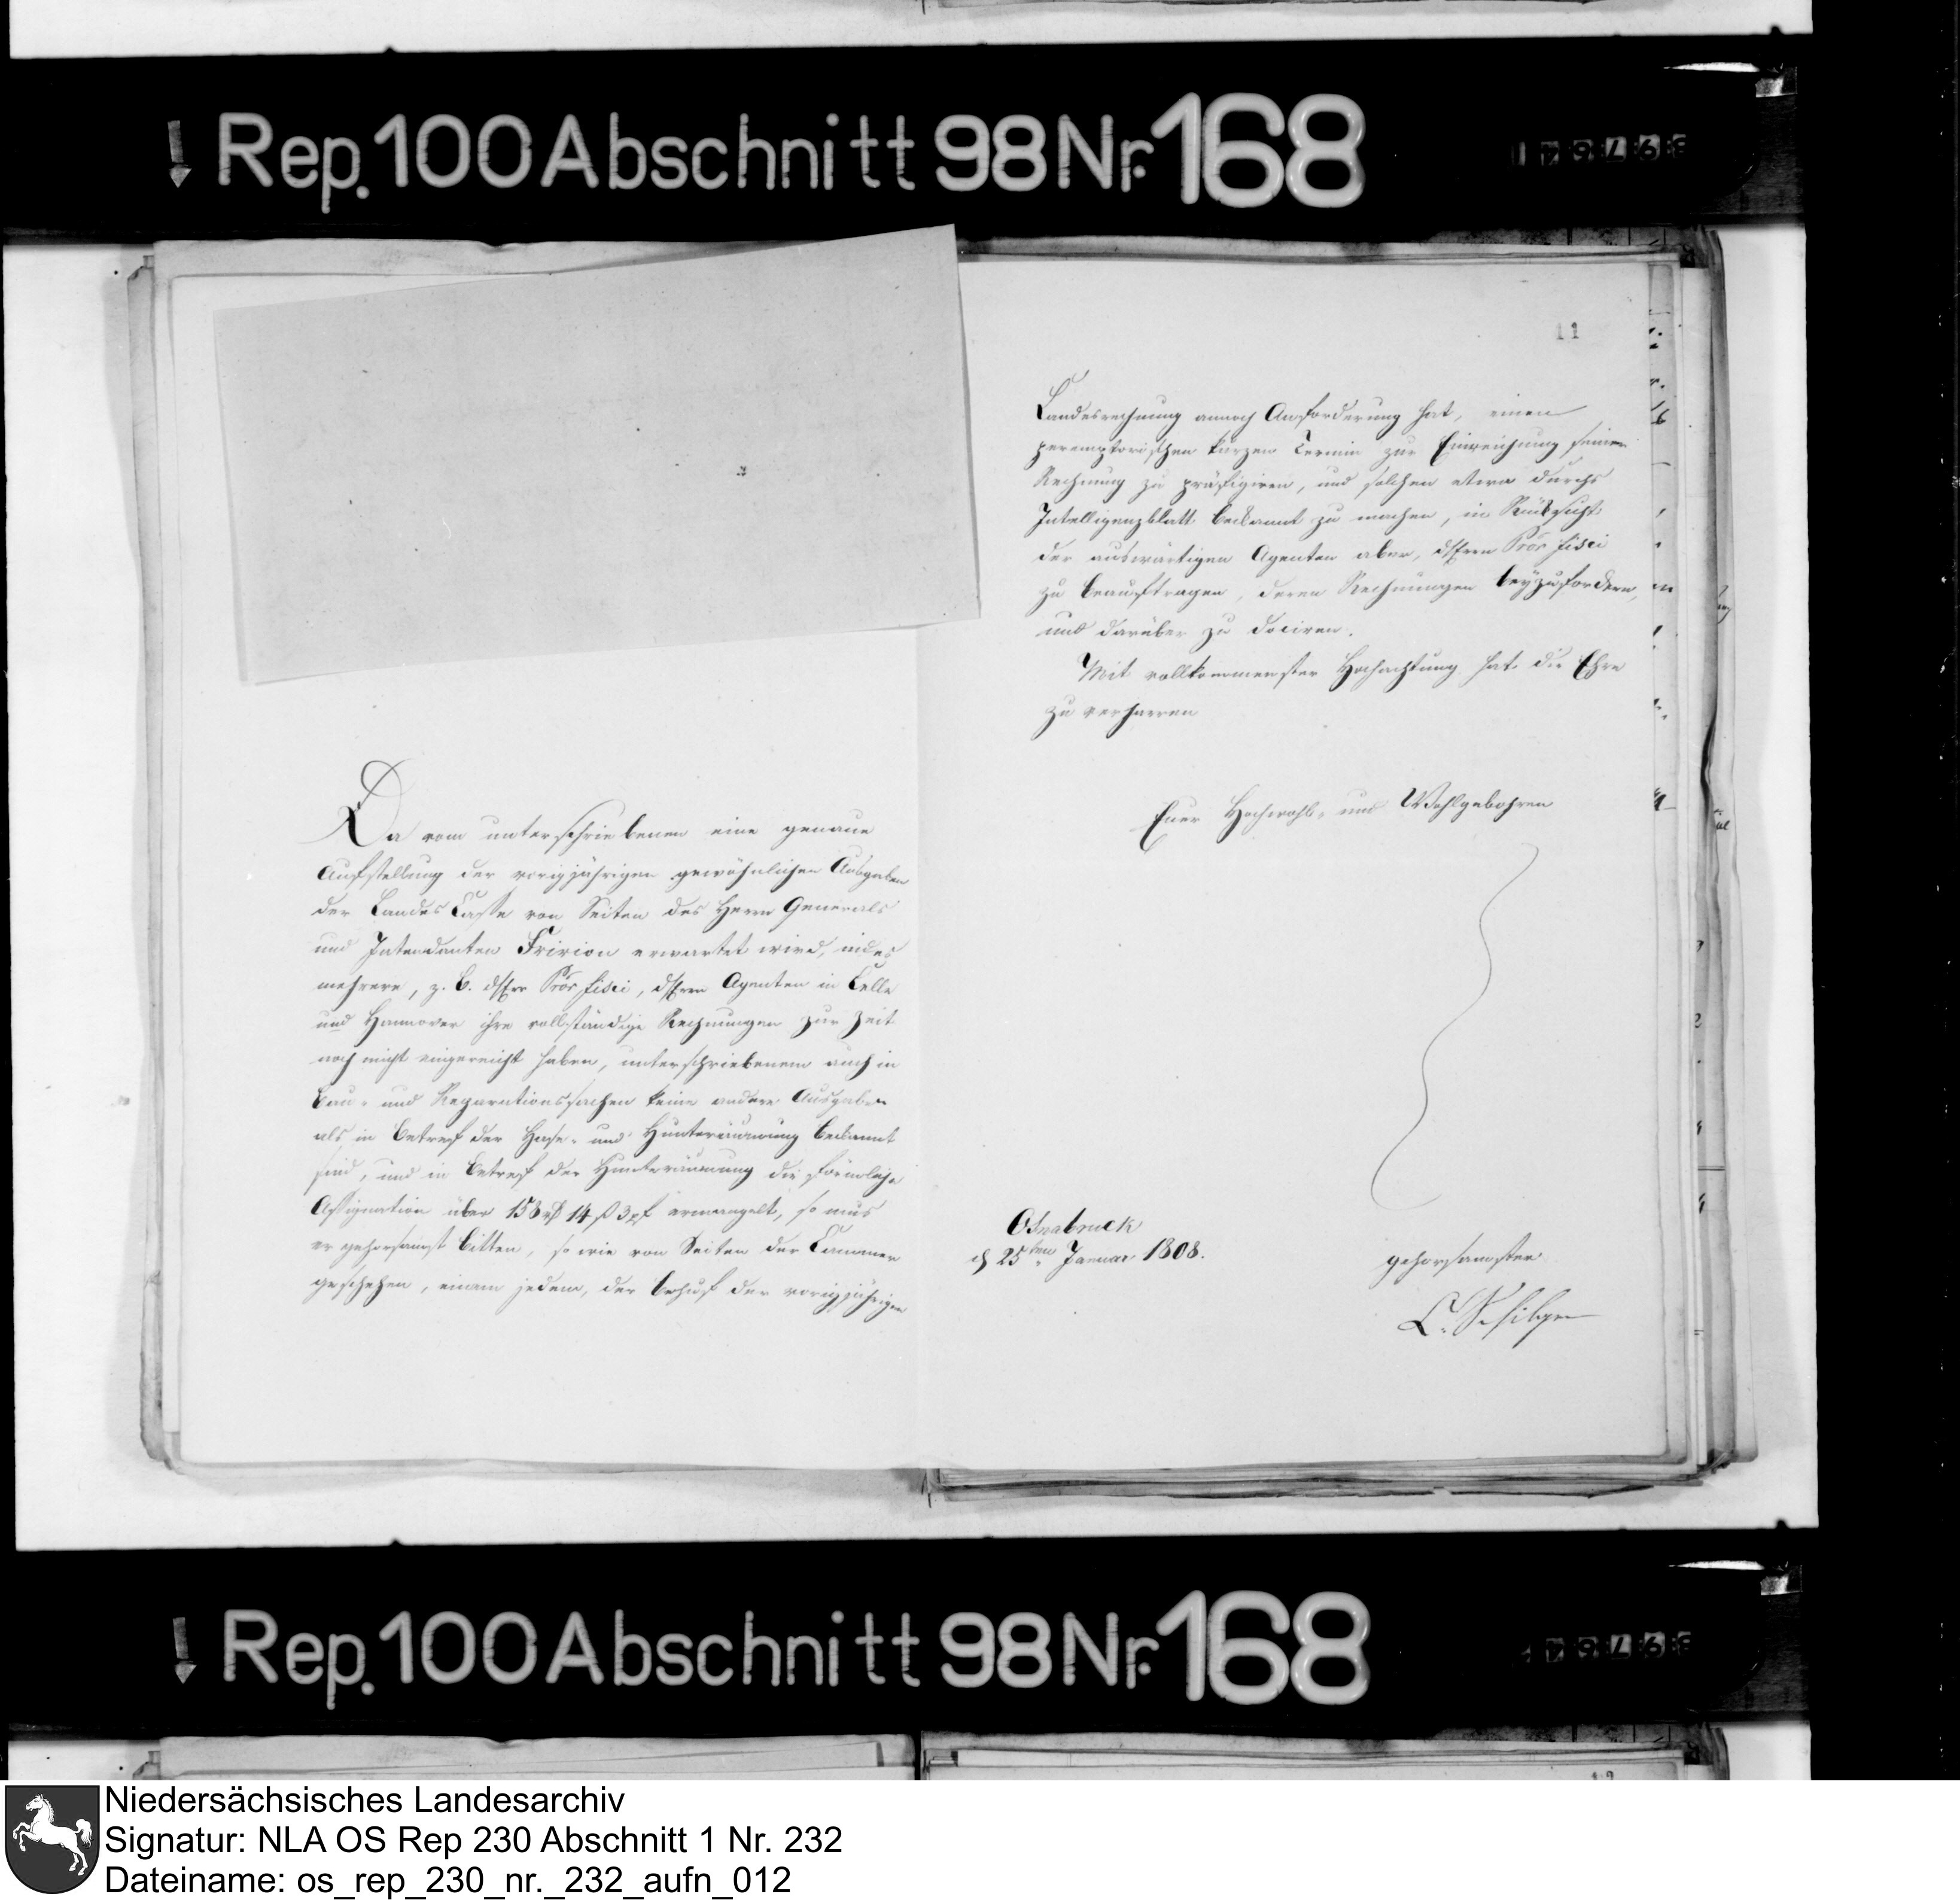 Rep. 100 Abschnitt 98 Nr. 168
11
Da vom unterschriebenen eine genaue
Aufstellung der vorigjährigen gewöhnlichen Ausgaben
der Landes Casse von Seiten des Herrn Generals
und Intendanten Fririon erwartet wird, indes
mehrere, z. B. Procr fisci, Agenten in Celle
und Hannover ihre vollständige Rechnungen zur Zeit
noch nicht eingereicht haben, unterschriebenem auch in
Bau- und Reparationssachen keine andere Ausgaben
als in Betref der Hase- und Hunteräumung bekannt
sind, und in Betref der Hunteräumung die förmliche
Assignation über 158 rthl 14 ß 3 pf ermangelt, so mus
er gehorsamst bitten, so wie von Seiten der Cammer
geschehen, einem jedem, der behuf der vorigjährigen
Landesrechnung annoch Anforderung hat, einen
peremptorischen kurzen Termin zur Einreichung seiner
Rechnung zu präfigiren, und solchen etwa durchs
Intelligenzblatt bekannt zu machen, in Rücksicht
der auswärtigen Agenten aber, Procr fisci
zu beauftragen, deren Rechnungen beyzufordern,
und darüber zu dociren.
Mit vollkommenster Hochachtung hat die Ehre
zu verharren
Euer Hochwohl- und Wohlgebohren
Osnabruck
d 25ten Januar 1808.
gehorsamster
Rep. 100 Abschnitt 98 Nr. 168
Niedersächsisches Landesarchiv
Signatur: NLA OS Rep 230 Abschnitt 1 Nr. 232
Dateiname: os_rep_230_nr._232_aufn_012